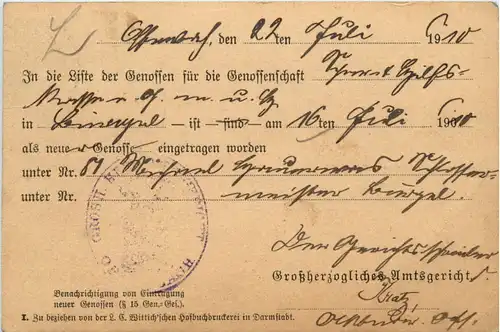 Offenbach, den 22ten Juli 1910
In die Liste der Genossen für die Genossenschaft Spar & Hilfs-
kasse e. G. m. u. H.
in Bürgel – ist – sind – am 16ten Juli 1910
als neuer Genosse eingetragen worden
unter Nr. 51 Michael Schlosser-
unter Nr. meister Bürgel.
Der Gerichtsschreiber
Großherzogliches Amtsgericht
Kratz
GROSH.
Benachrichtigung von Eintragung
neuer Genossen (§ 15 Gen.-Ges.).
I. Zu beziehen von der L. C. Wittich'schen Hofbuchdruckerei in Darmstadt.